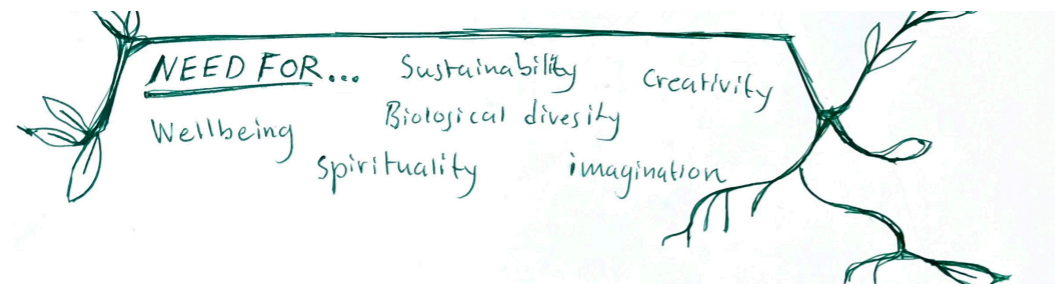 NEED FOR... Sustainability Creativity
Wellbeing Biological divesity
spirituality imagination